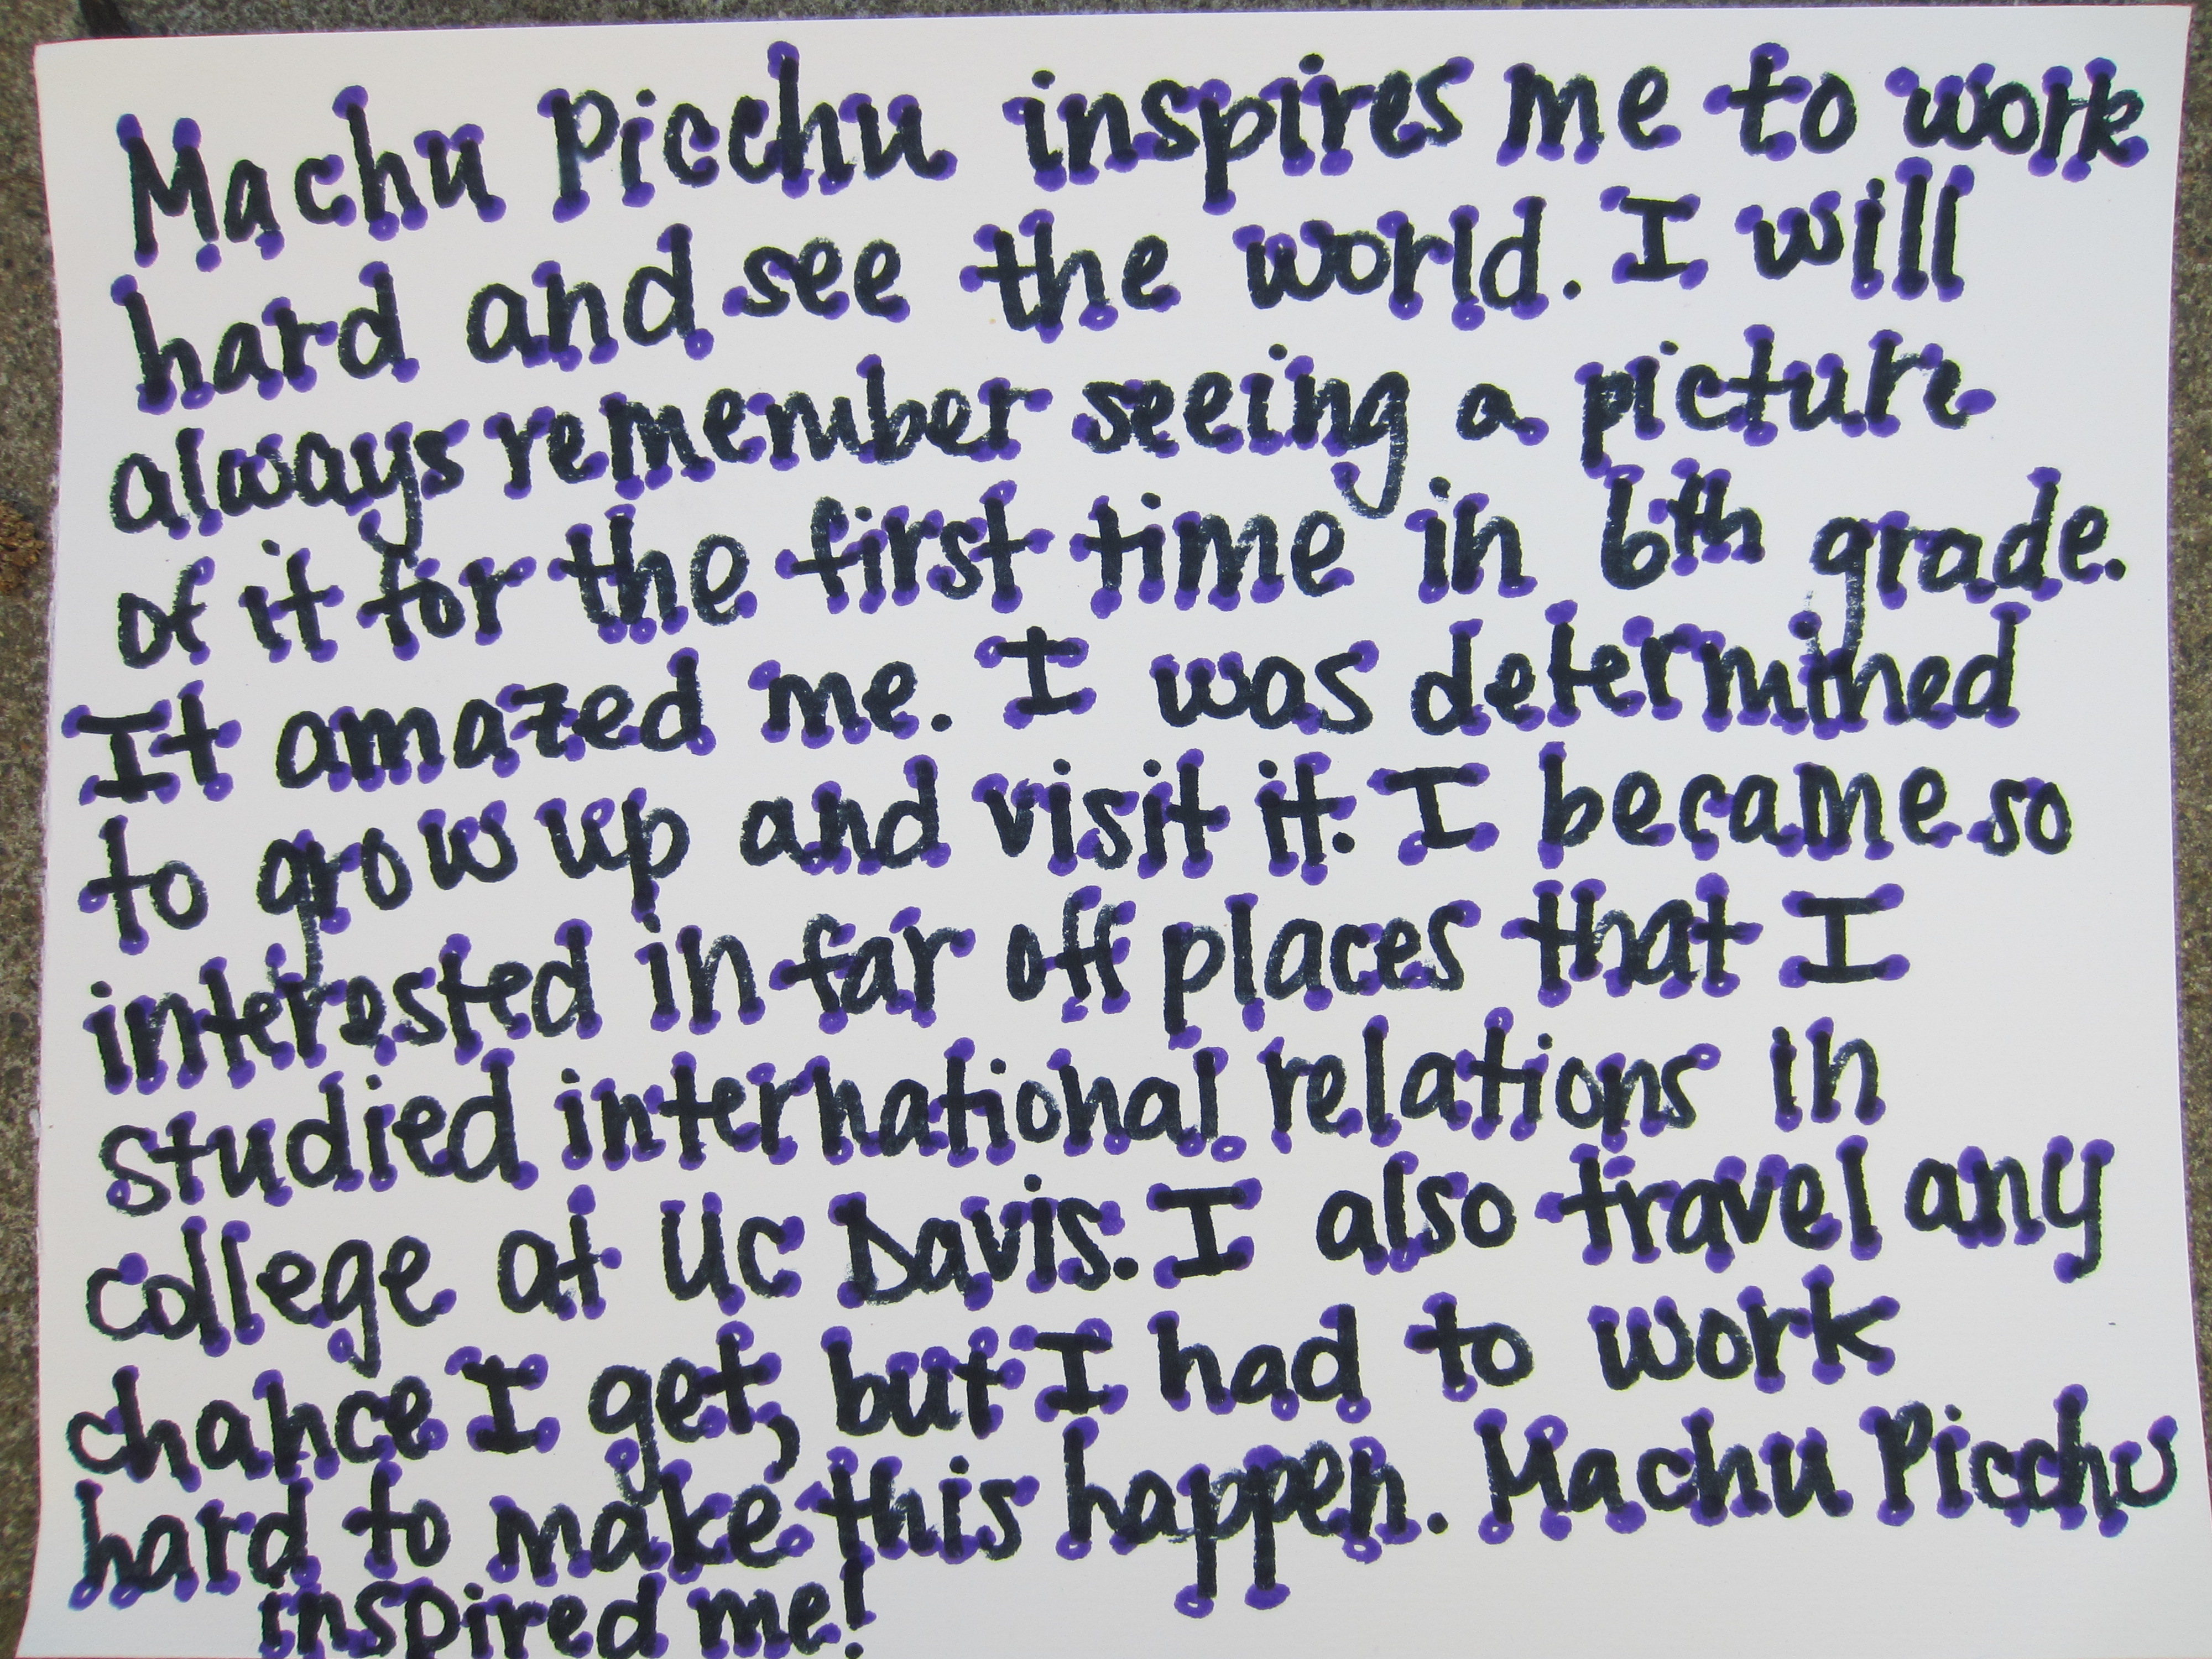 Machu Picchu inspires me to work
hard and see the world. I will
always remember seeing a picture
of it for the first time in 6th grade.
It amazed me. I was determined
to grow up and visit it. I became so
interested in far off places that I
studied international relations in
college at UC Davis. I also travel any
chance I get, but I had to work
hard to make this happen. Machu Picchu
inspired me!